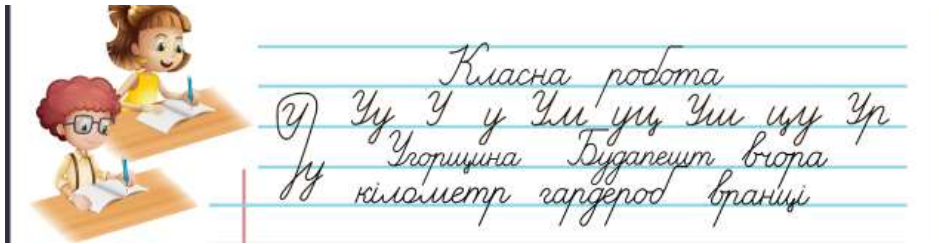 Класна робота
У Уу У у Ум уц Уш цу Ур
у Угорщина Будапешт вчора
кілометр гардероб вранці